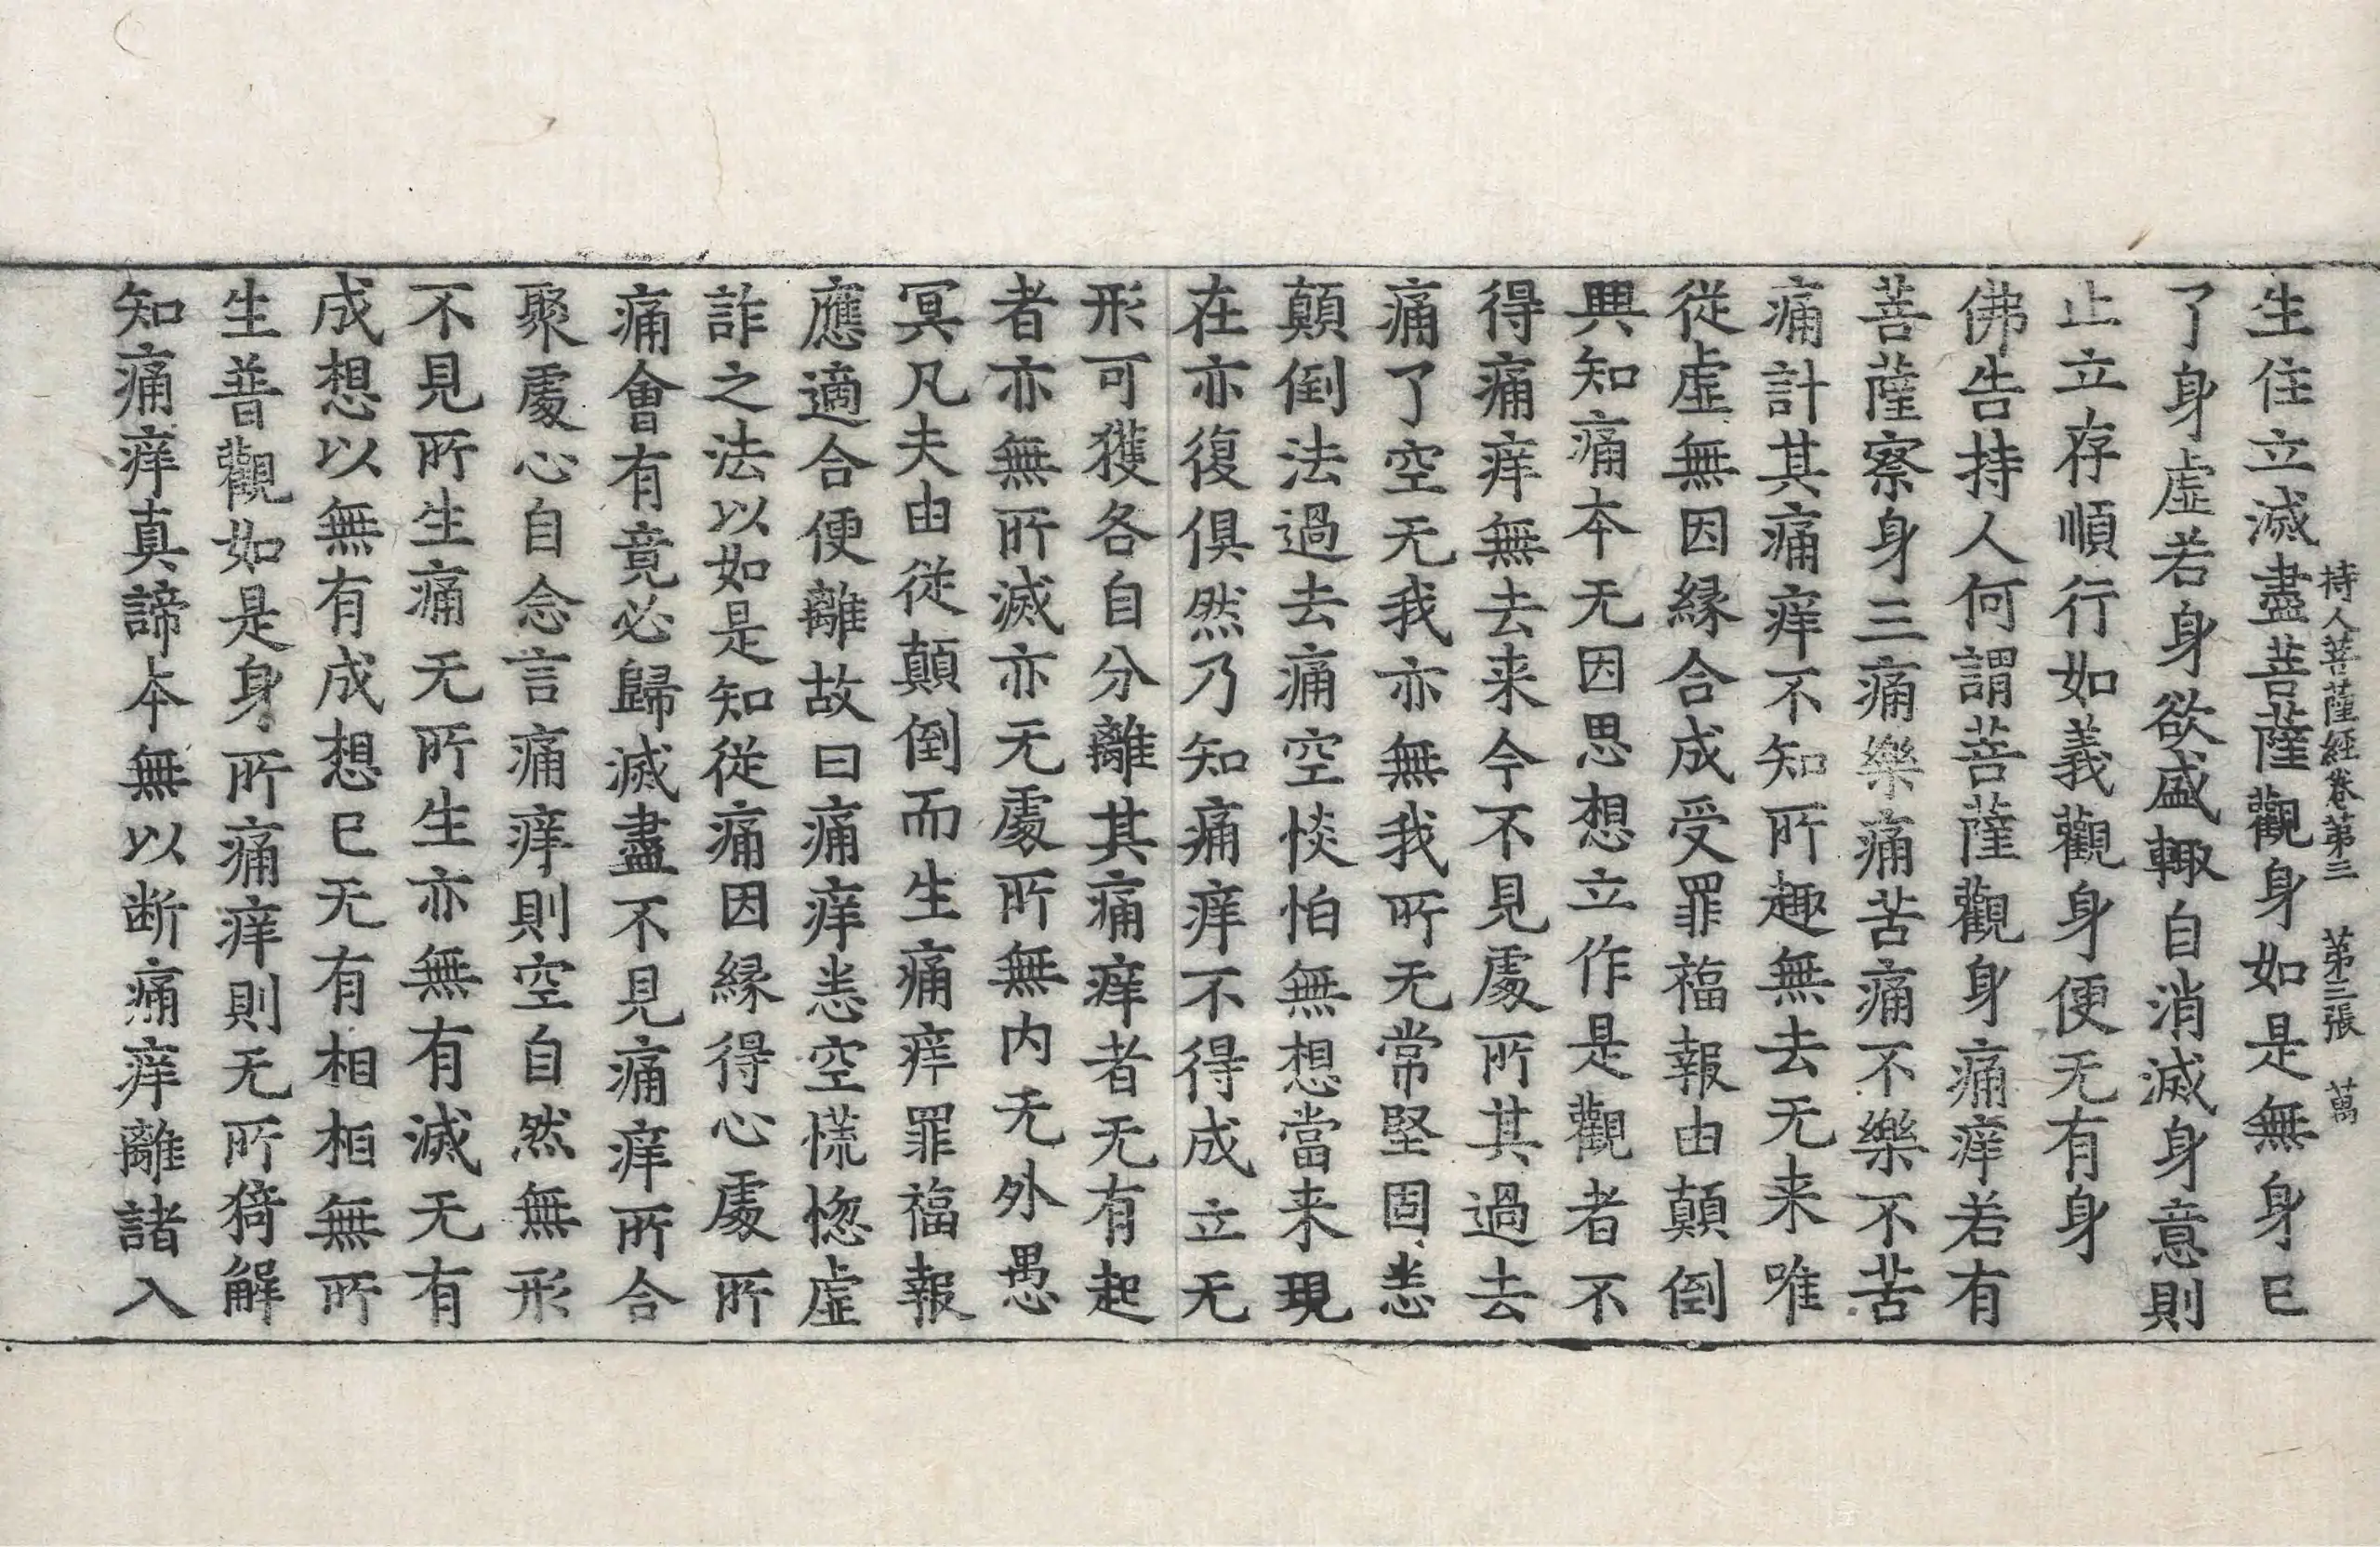 持人菩薩經卷第三 第二張 萬
生住立滅盡菩薩觀身如是無身已
了身虛若身欲盛輙自消滅身意則
止立存順行如義觀身便无有身
佛告持人何謂菩薩觀身痛痒若有
菩薩察身三痛樂痛苦痛不樂不苦
痛計其痛痒不知所趣無去无来唯
從虛無因緣合成受罪福報由顛倒
興知痛本无因思想立作是觀者不
得痛痒無去来今不見處所其過去
痛了空无我亦無我所无常堅固悉
顛倒法過去痛空惔怕無想當来現
在亦復俱然乃知痛痒不得成立无
形可獲各自分離其痛痒者无有起
者亦無所滅亦无處所無内无外愚
冥凡夫由從顛倒而生痛痒罪福報
應適合便離故曰痛痒悉空慌惚虛
詐之法以如是知從痛因緣得心處所
痛會有竟必歸滅盡不見痛痒所合
聚處心自念言痛痒則空自然無形
不見所生痛无所生亦無有滅无有
成想以無有成想已无有相相無所
生普觀如是身所痛痒則无所猗解
知痛痒真諦本無以断痛痒離諸入